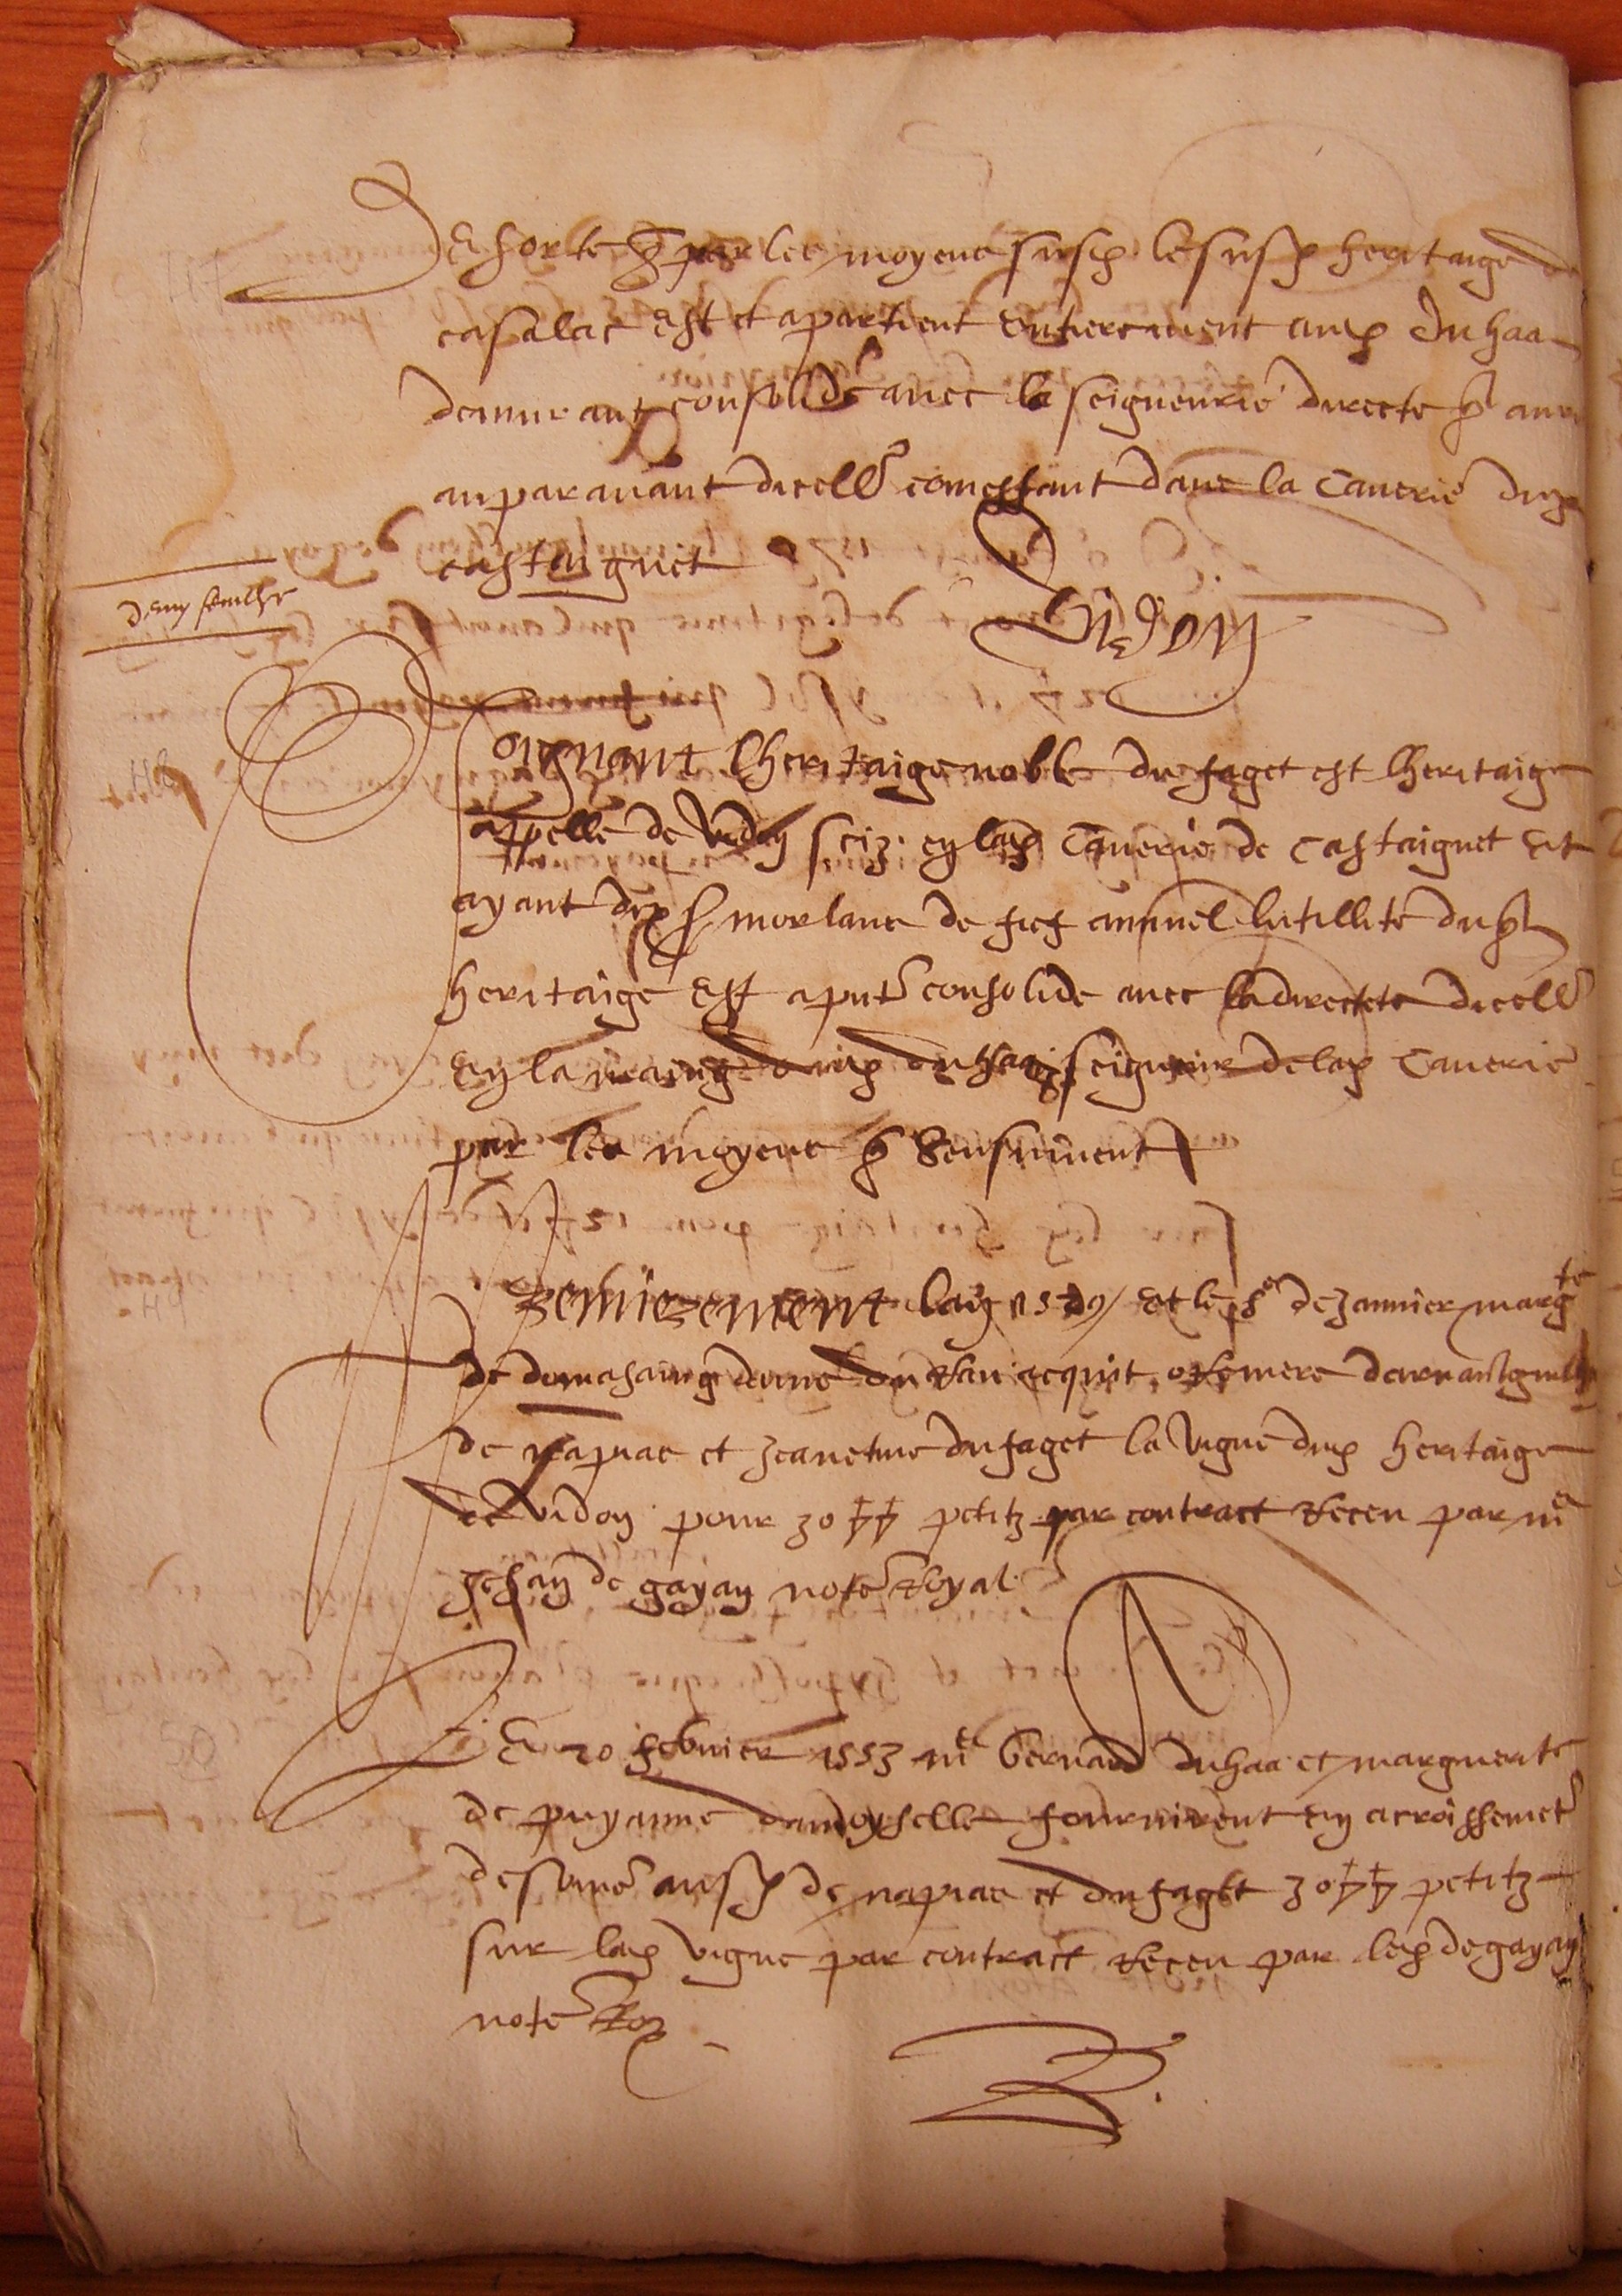 De sorte q par les moyens susd. le susd heritaige de
casalac est et apartient entierement aud Du haa
demurant consolide avec la seigneurie directe q
auparavant dicelle comestant dans la Caverie dud
castaignet
Vidon
demy feulhe
Joignant lheritaige noble du faget est lheritaige
appelle de Vidon scis en lad Caverie de Castaignet et
ayant dix s morlans de fief annuel lutillite dud
heritaige est a pnt consolide avec la directete dicelle
en la maing dud du haa seigneur de lad Caverie
par les moyens q sensuivent
Premierement lan 1549 et le 8e de Janvier margte
de domasaing dame du acquit demere darnault guilhem
de napiac et Jeanetine du faget la Vigne dud heritaige
de Vidon pour 30 ff petitz par contract Receu par me
Jehan de gayan note Royal
Le 20 febvrier 1553 me bernard du haa et marguerite
de puyanne damoyselle fournirent en acroissemet
de some ausd de napiac et du faget 30 ff petitz
sur lad vigne par contract Receu par led de gayan
note Roy